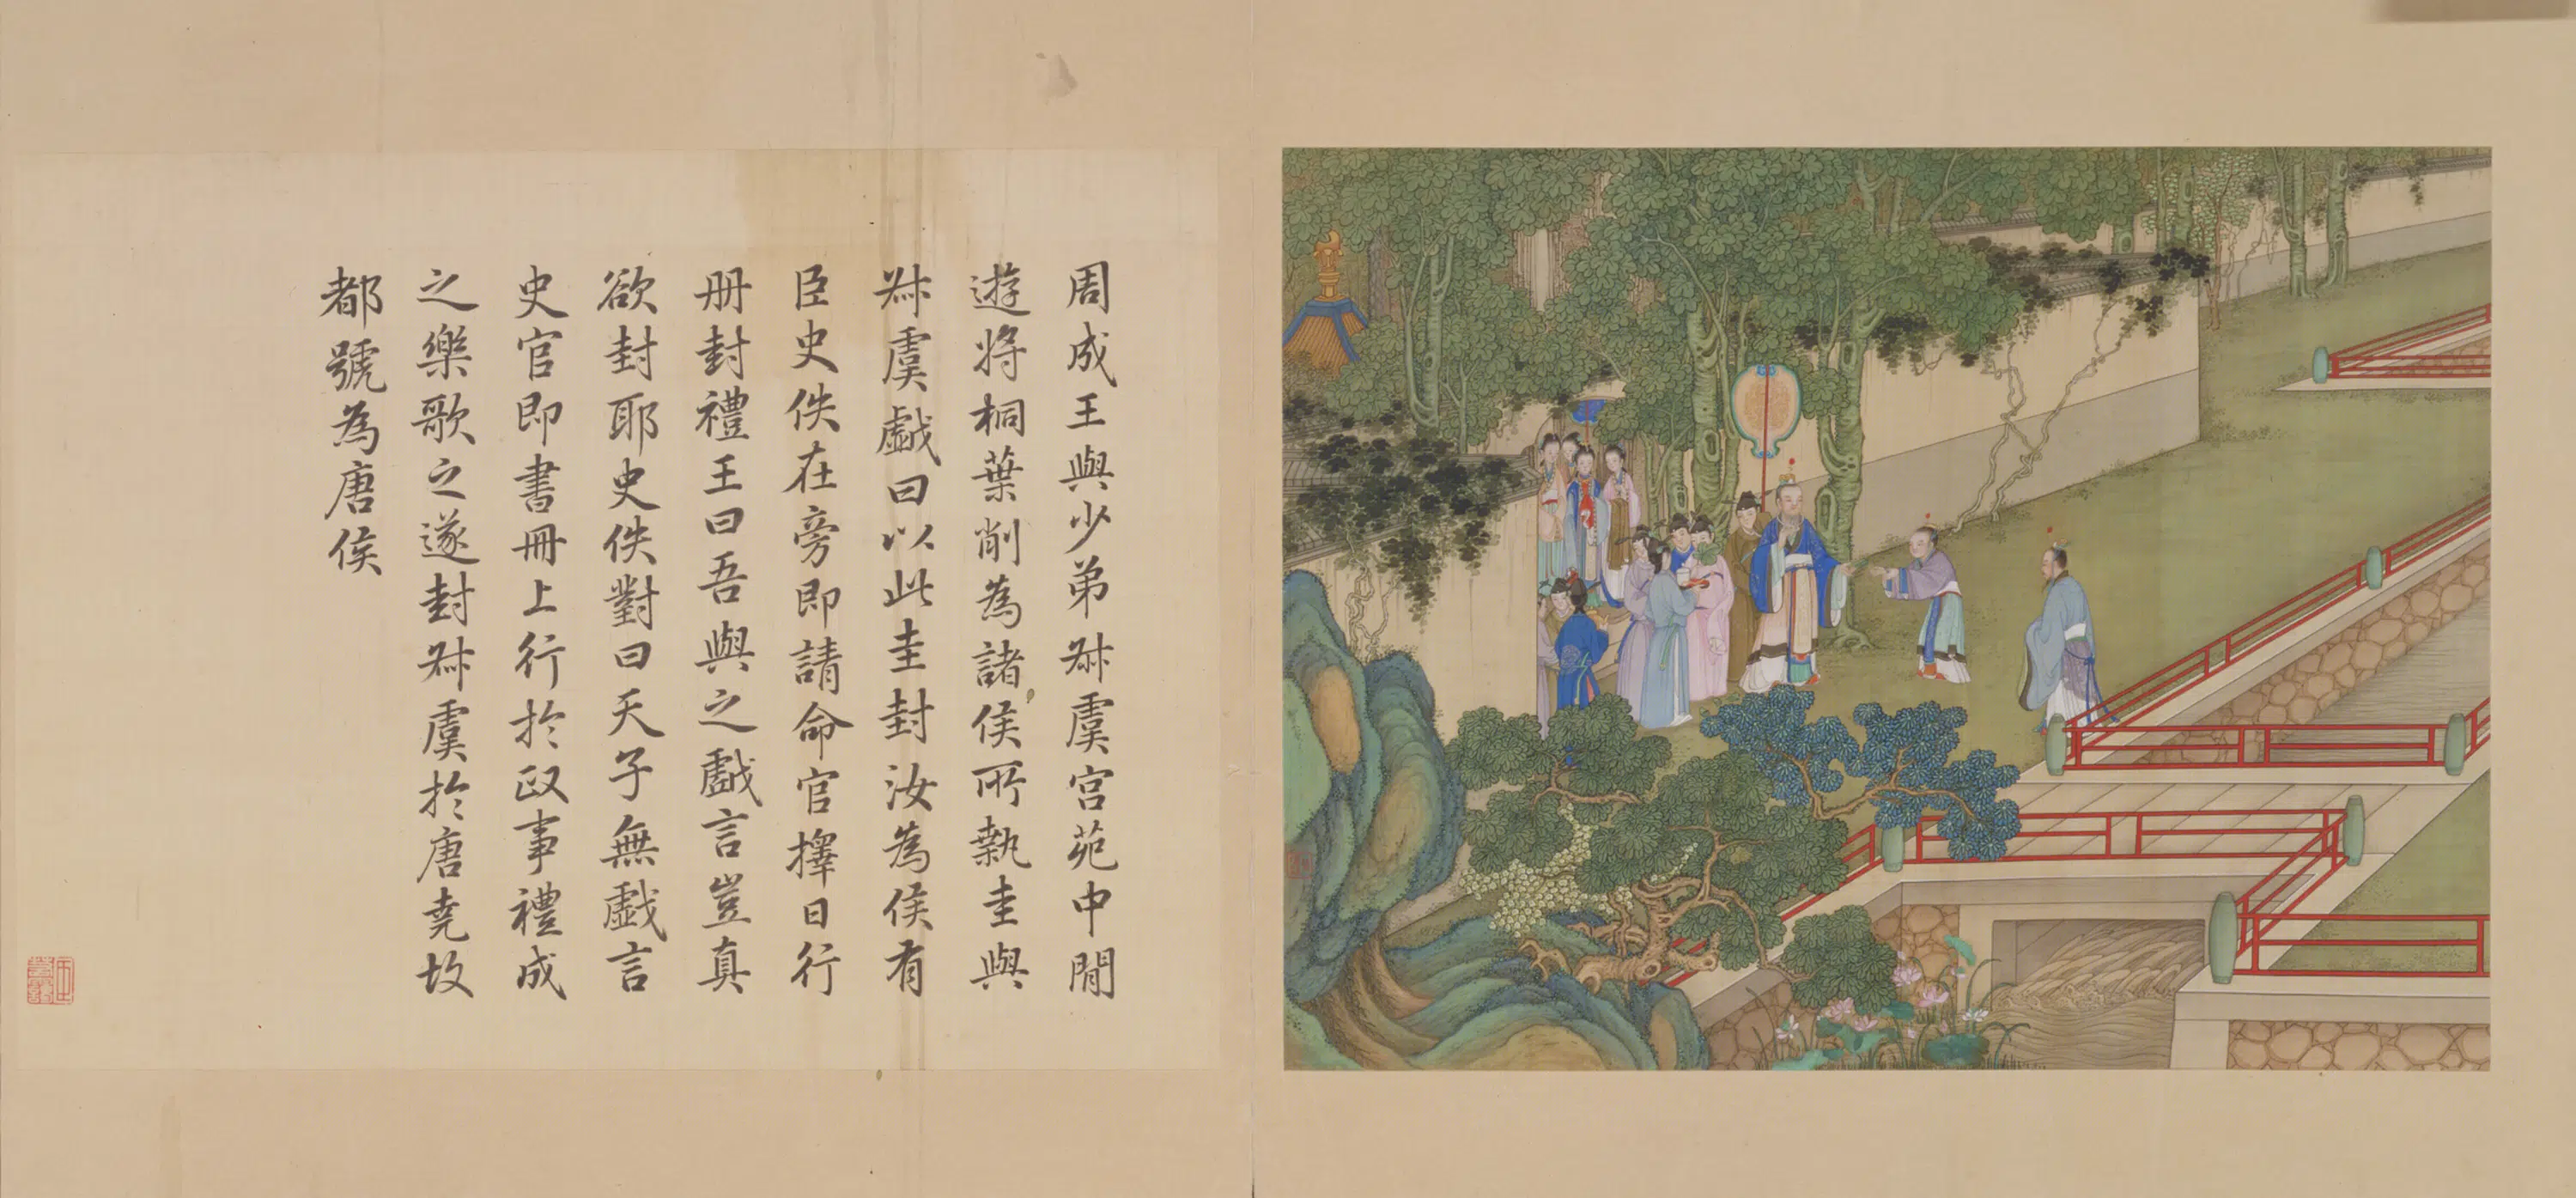 周成王與少弟叔虞宮苑中閒
遊将桐葉削為諸侯所執圭與
叔虞戯曰以此圭封汝為侯有
臣史佚在旁即請命官擇日行
册封禮王曰吾與之戯言豈真
欲封耶史佚對曰天子無戯言
史官即書冊上行於政事禮成
之樂歌之遂封叔虞於唐堯故
都號為唐侯